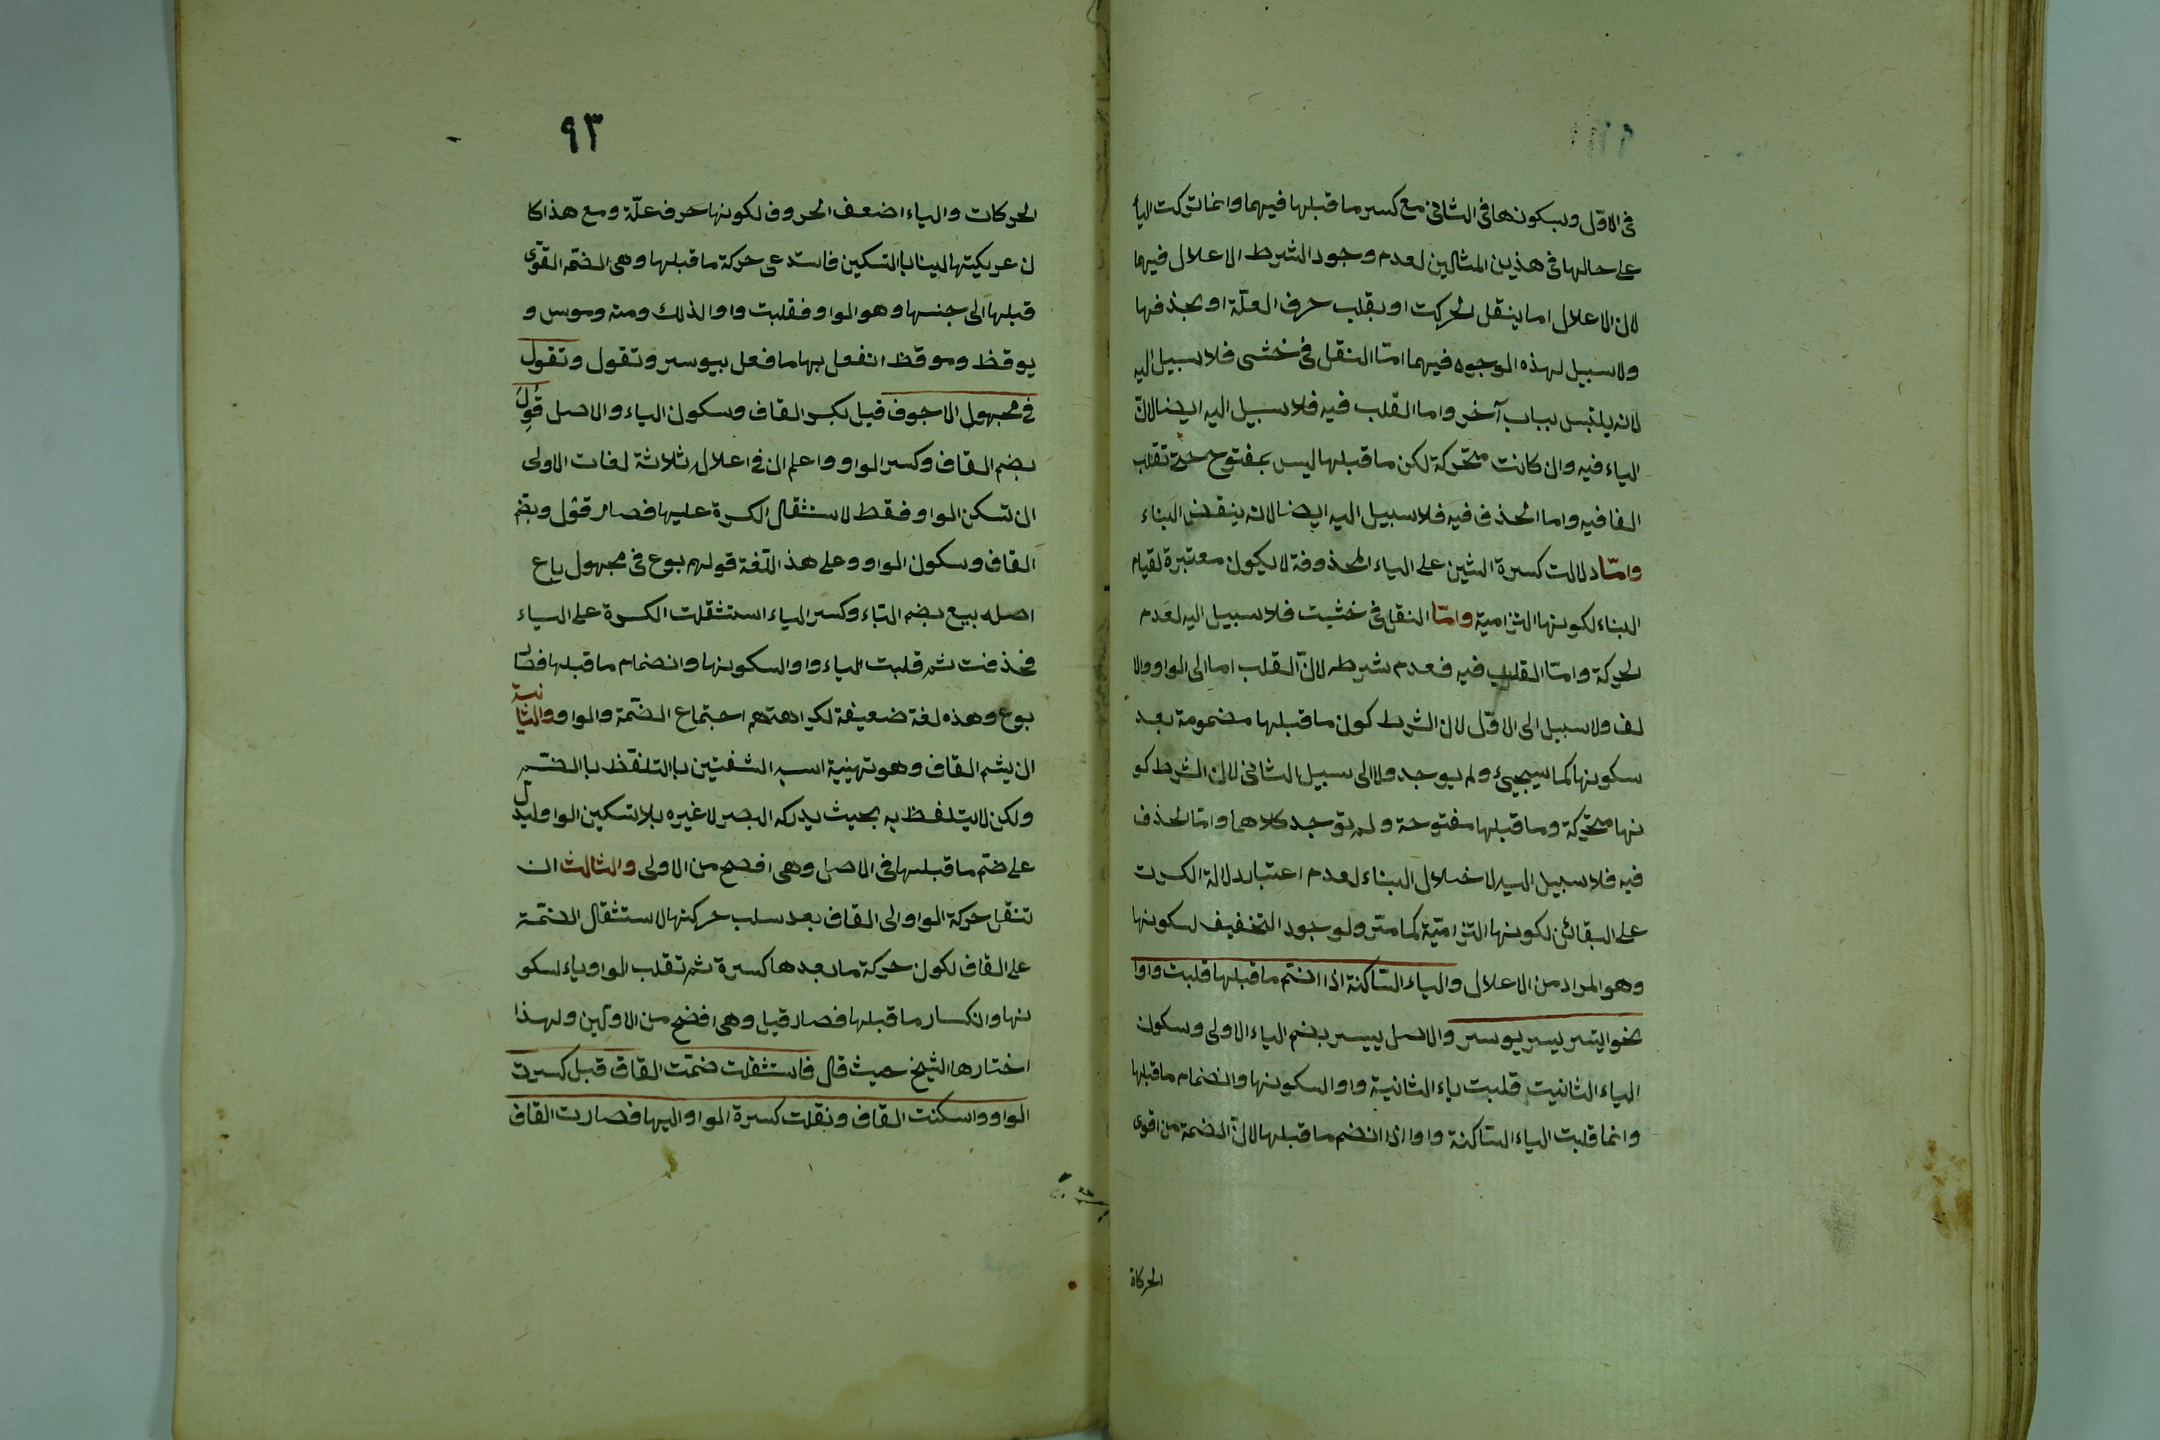 فى الاوّل وبسكونها فى الثانى مع كسر ما قبلها فيهما وانما تركت الياء
على حالها فى هذين المثالين لعدم وجود الشرط الاعلال فيهما
لان الاعلال اما ينقل الحركت او بقلب حرف العلّة او بحذفها
ولا سبيل لهذه الوجوه فيهما امّا النقل فى خشى فلا سبيل اليه
لانه يلتبس بباب آخر واما القلب فيه فلا سبيل اليه ايضا لانّ
الياء فيه وان كانت متحركة لكن ما قبلها ليس بمفتوح حتى تقلب
الفا فيه واما الحذف فيه فلا سبيل اليه ايضا لانه ينقض البناء
وامّا دلالت كسرة الشين على الياء المحذوفة لا يكون معتبرة لقيام
البناء لكونها التزامية وامّا النقل فى خشيت فلا سبيل اليه لعدم
الحركة وامّا القلب فيه فعدم شرطه لانّ القلب اما الى الواو والا
لف ولا سبيل الى الاوّل لان الشرط كون ما قبلها مضمومة بعد
سكونها كما سيجيئ ولم يوجد ولا الى سبيل الثانى لان الشرط كو
نها متحركة وما قبلها مفتوحة ولم توجد كلاهما وامّا الحذف
فيه فلا سبيل اليه لاختلال البناء لعدم اعتبار دلالة الكسرت
على البقائن لكونها التزاميّة كما متر ولوجود التخفيف لسكونها
وهو المراد من الاعلال والياء السّاكنة اذا انضم ما قبلها قلبت واوا
نحو ايسر ييسر يوسر والاصل ييسر بضم الياء الاولى وسكون
الياء الثانيت قلبت ياء الثانية واوا لسكونها وانضمام ما قبلها
وانما قلبت الياء السّاكنة واوا اذا انضم ما قبلها لانّ الضمة من اقوى
الحركاة
٩٣
الحركات والياء اضعف الحروف لكونها حرف علّة ومع هذا كا
ن عريكتها لينا بالتسكين فاستدعى حركة ما قبلها وهى الضمّه القوّى
قبلها الى جنسها وهو الواو فقلبت واوا لذلك ومنه وموسر و
يوقظ وموقظ انفعل بها ما فعل بيوسر وتقول وتقول
فى مجهول الاجوف قيل بكسر القاف وسكون الياء والاصل قُوِلَ
بضم القاف وكسر الواو واعلم ان فى اعلاله ثلاثة لغات الاولى
ان تسكن الواو فقط لاستثقال الكسرة عليها فصار قول وبضم
القاف وسكون الواو وعلى هذ اللّغة قولهم بوع فى مجهول باع
اصله بيع بضم الباء وكسر الياء استثقلت الكسرة على الياء
فحذفت ثم قلبت الياء واوا لسكونها وانضمام ما قبلها فصار
بوع وهذه لغة ضعيفة لكراهتهم اجتماع الضمّة والواو والثانية
ان يشم القاف وهو تهيئة اسبـ الشفتين باالتلفّظ باالضمّـ
ولكن لا يتلفظ به بحيث يدركه البصر لا غيره بلا تسكين الواو ليدل
على ضمّ ما قبلها فى الاصل وهى افصح من الاولى والثالث ان
تنقل حركة الواو الى القاف بعد سلب حركتها لاستثقال الضمّة
على القاف لكون حركة ما بعدها كسرة ثم تقلب الواو ياء لسكو
نها وانكسار ما قبلها فصار قيل وهى افضح من الاوليّن ولهذا
اختارها الشيخ حيث قال فاستثقلت ضمّت القاف قبل كسرت
الواو واسكنت القاف ونقلت كسرة الواو اليها فصارت القاف